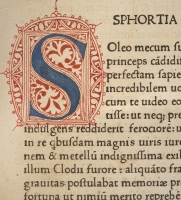 SPHORTIA
Soleo mecum s
princeps cādidi
perfectam sapie
incredibilem uc
cum te uideo eo
tisse: ut neq; pre
indulgens reddiderit ferociorē: u
in re q̄busdam magnis uiris iurc
nem & metellū indignissima exil
illum Clodii furore: aliquāto fra
grauitas postulabat memoriæ pro
fortuna ut nimiū merito reprehē